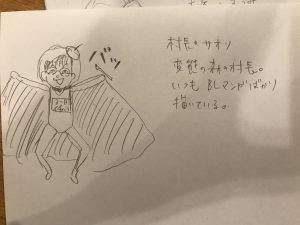 村長のサオリ
変態の森の村長。
いつもBLマンガばかり
描いている。